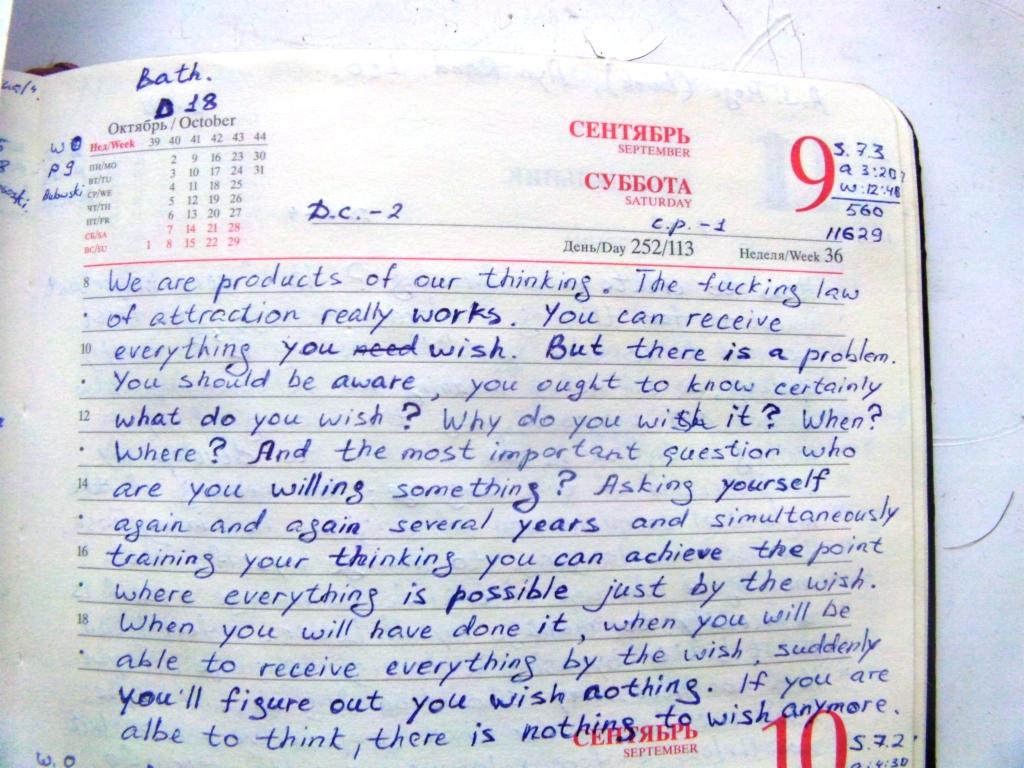 Bath.
D 18
Октябрь / October
Нед/Week 39 40 41 42 43 44
ПН/MO 2 9 16 23 30
ВТ/TU 3 10 17 24 31
СР/WE 4 11 18 25
ЧТ/TH 5 12 19 26
ПТ/FR 6 13 20 27
СБ/SA 7 14 21 28
ВС/SU 1 8 15 22 29
P 9
СЕНТЯБРЬ
SEPTEMBER
СУББОТА
SATURDAY
9
S. 7.3
a 3:20?
w:12:48
560
11629
D.c.-2
c.p.-1
День/Day 252/113 Неделя/Week 36
8 We are products of our thinking. The fucking law
of attraction really works. You can receive
10 everything you need wish. But there is a problem.
You should be aware, you ought to know certainly
12 what do you wish? Why do you wish it? When?
Where? And the most important question who
14 are you willing something? Asking yourself
again and again several years and simultaneously
16 training your thinking you can achieve the point
where everything is possible just by the wish.
18 When you will have done it, when you will be
able to receive everything by the wish, suddenly
you'll figure out you wish nothing. If you are
albe to think, there is nothing to wish anymore.
СЕНТЯБРЬ
SEPTEMBER
10
S. 7.2
a:4:30
w.0